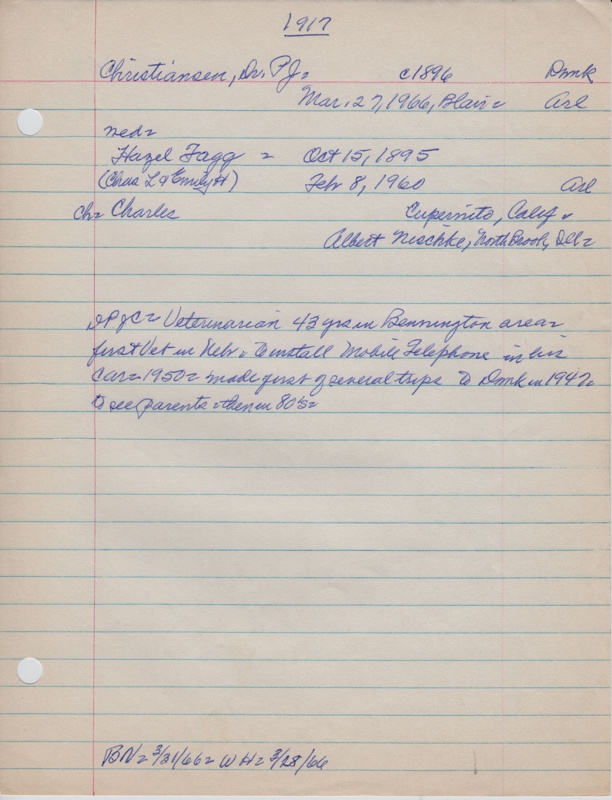 1917
Christiansen, Dr. P J= c1896 Dmk
Mar. 27, 1966, Blair= Arl
med=
Hazel Fagg = Oct 15, 1895
(Chas L & Emily H) Feb 8, 1960 Arl
ch= Charles Cupernito, Calif.
Albert Nischke, North Brook, Ill=
PJC= Veterinarian 43 yrs in Bennington area=
first Vet in Nebr. to install Mobile Telephone in his
Car= 1950= made first of several trips to Dmk in 1947=
to see parents= then in 80's=
BN= 3/31/66= WH= 3/28/66